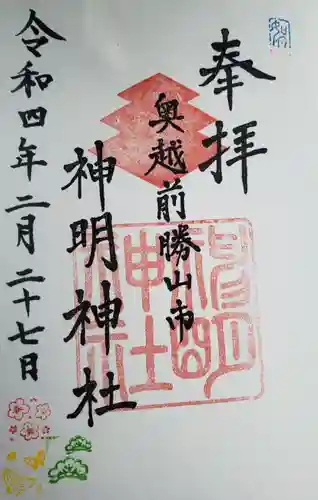 奉拝
奥越前勝山市
神明神社
令和四年二月二十七日
神明神社